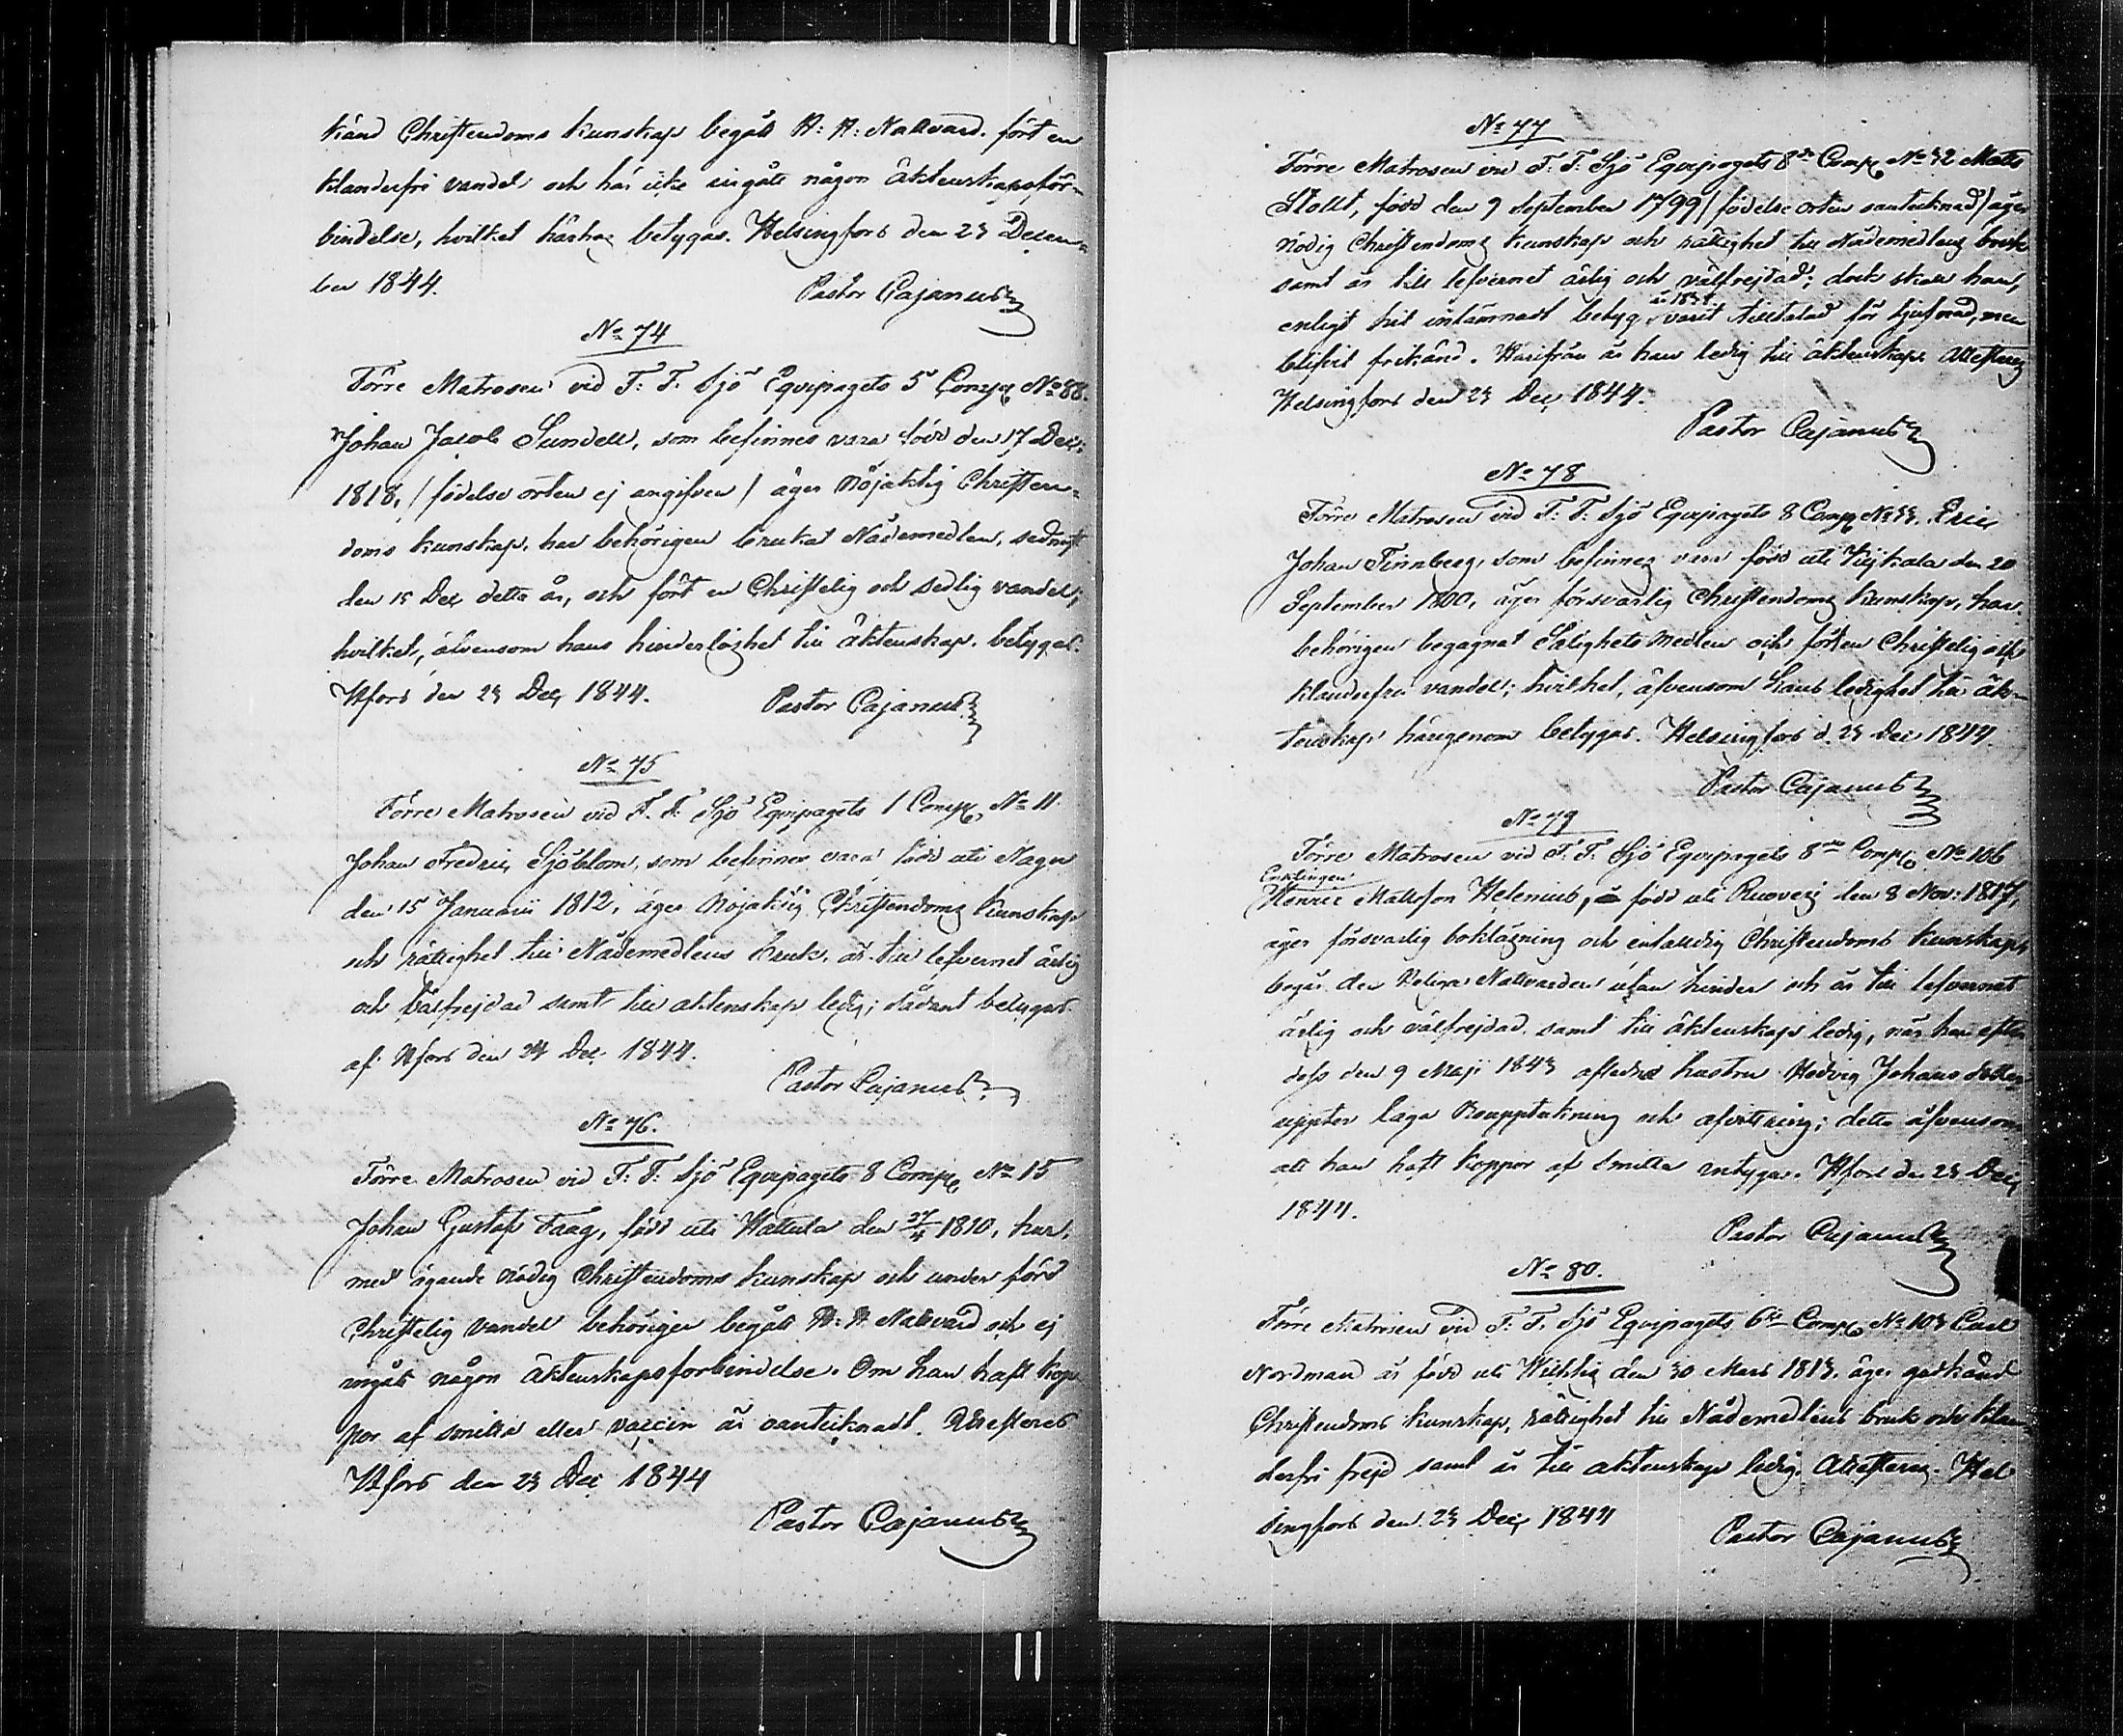 känd Christendoms kunskap begått H: H: Nattvard. fört en
klanderfri vandel och har icke ingått någon äktenskapsför-
bindelse, hvilket härhos betygas. Helsingfors den 23 Decem-
ber 1844.
Pastor Cajanus
No 74
Förre Matrosen vid F: F: Sjö Equipagets 5 Comp. No 88.
Johan Jacob Sundell, som befinnes vara född den 17 Dec:
1818, / födelse orten ej angifven / äger nöjaktig Christen-
doms kunskap, har behörigen brukat Nådemedlen, sednast
den 15 Dec. detta år, och fört en Christelig och sedlig vandel;
hvilket, äfvensom hans hinderlöshet till äktenskap. betygas.
Hfors den 23 Dec. 1844.
Pastor Cajanus
No 75
Förre Matrosen vid F. F: Sjö Equipagets 1 Comp. No 11
Johan Fredric Sjöblom, som befinnes vara född uti Nagu
den 15 Januarii 1812, äger nöjaktig Christendoms kunskap
och rättighet till Nådemedlens bruk, är till lefvernet ärlig
och välfrejdad samt till äktenskap ledig; sådant betygas.
af Hfors den 24 Dec. 1844.
Pastor Cajanus
No 76.
Förre Matrosen vid F: F: Sjö Equipagets 8 Comp. No 15
Johan Gustaf Faag, född uti Hattula den 27/4 1810, har,
med ägande nödig Christendoms kunskap och under förd
Christelig vandel behörigen begått H: H. Nattvard och ej
ingått någon äktenskapsforbindelse. Om han haft kop
por af smitta eller vaccin är oantecknadt. Attesteras
Hfors den 23 Dec 1844
Pastor Cajanus
No 77
Förre Matrosen vid F: F: Sjö Equipagets 8de Comp. No 32 Matts
Stollt, född den 9 September 1799 / födelse orten oantecknad / äger
nödig Christendoms kunskap och rättighet till Nådemedlens bruk
samt är till lefvernet ärlig och välfrejdad; dock skall han,
enligt hit inlämnadt betyg år 1834 varit tilltalad för tjufnad, men
blifvit frikänd. Härifrån är han ledig till äktenskap. Attesteras
Helsingfors den 23 Dec. 1844.
Pastor Cajanus
No 78
Förre Matrosen vid F: F: Sjö Equipagets 8 Comp. No 33. Eric
Johan Finnberg, som befinnes vara född uti Kijkala den 20
September 1800, äger försvarlig Christendoms kunskap, har
behörigen begagnat Salighets medlen och fört en Christelig och
klanderfri vandel; hvilket, äfvensom hans ledighet till äk-
tenskap härigenom betygas. Helsingfors d. 23 Dec 1844
Pastor Cajanus
No 79
Förre Matrosen vid F. F: Sjö Equipagets 8de Comp. No 106
Enklingen
Henric Mattsson Helenius, född uti Ruovesi den 8 Nov: 1817,
äger försvarlig bokläsning och enfaldig Christendoms kunskap,
begår den Heliga Nattvarden utan hinder och är till lefvernet
ärlig och välfrejdad, samt till äktenskap ledig, när han efter
dess den 9 Maji 1843 afledna hustru Hedvig Johans dotter
uppter laga bouppteckning och afvittring; detta äfvensom
att han haft koppor af smitta intygas. Hfors den 23 Dec.
1844.
Pastor Cajanus
No 80.
Förre Matrosen vid F: F. Sjö Equipagets 6te Comp. No 103 Carl
Nordman är född uti Wichtis den 30 Mars 1813. äger godkänd
Christendoms kunskap, rättighet till Nådemedlens bruk och klan-
derfri frejd samt är till äktenskap ledig. Attesteras. Hel
singfors den 23 Dec, 1844
Pastor Cajanus